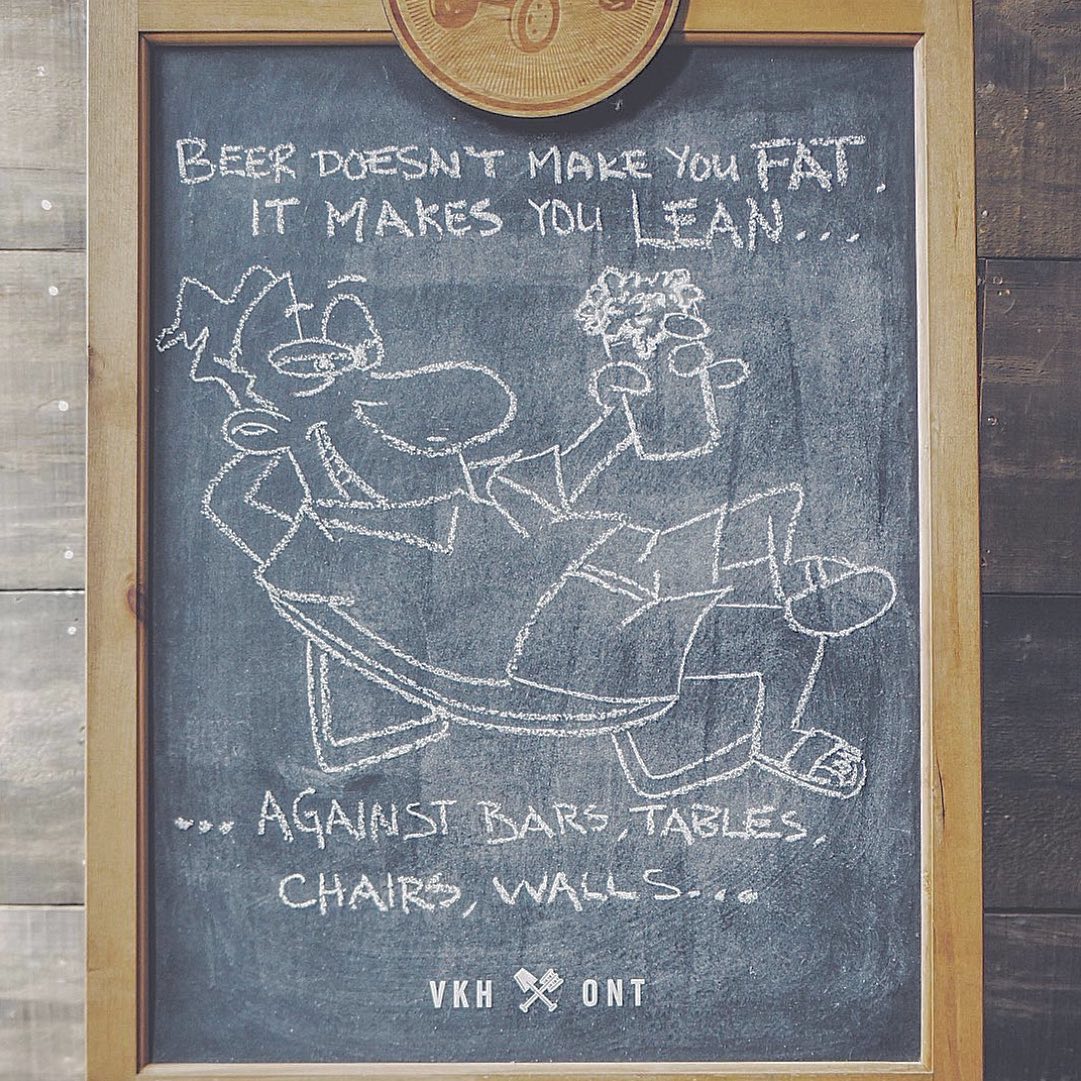 BEER DOESN'T MAKE YOU FAT,
IT MAKES YOU LEAN...
... AGAINST BARS, TABLES,
CHAIRS, WALLS...
VKH ONT